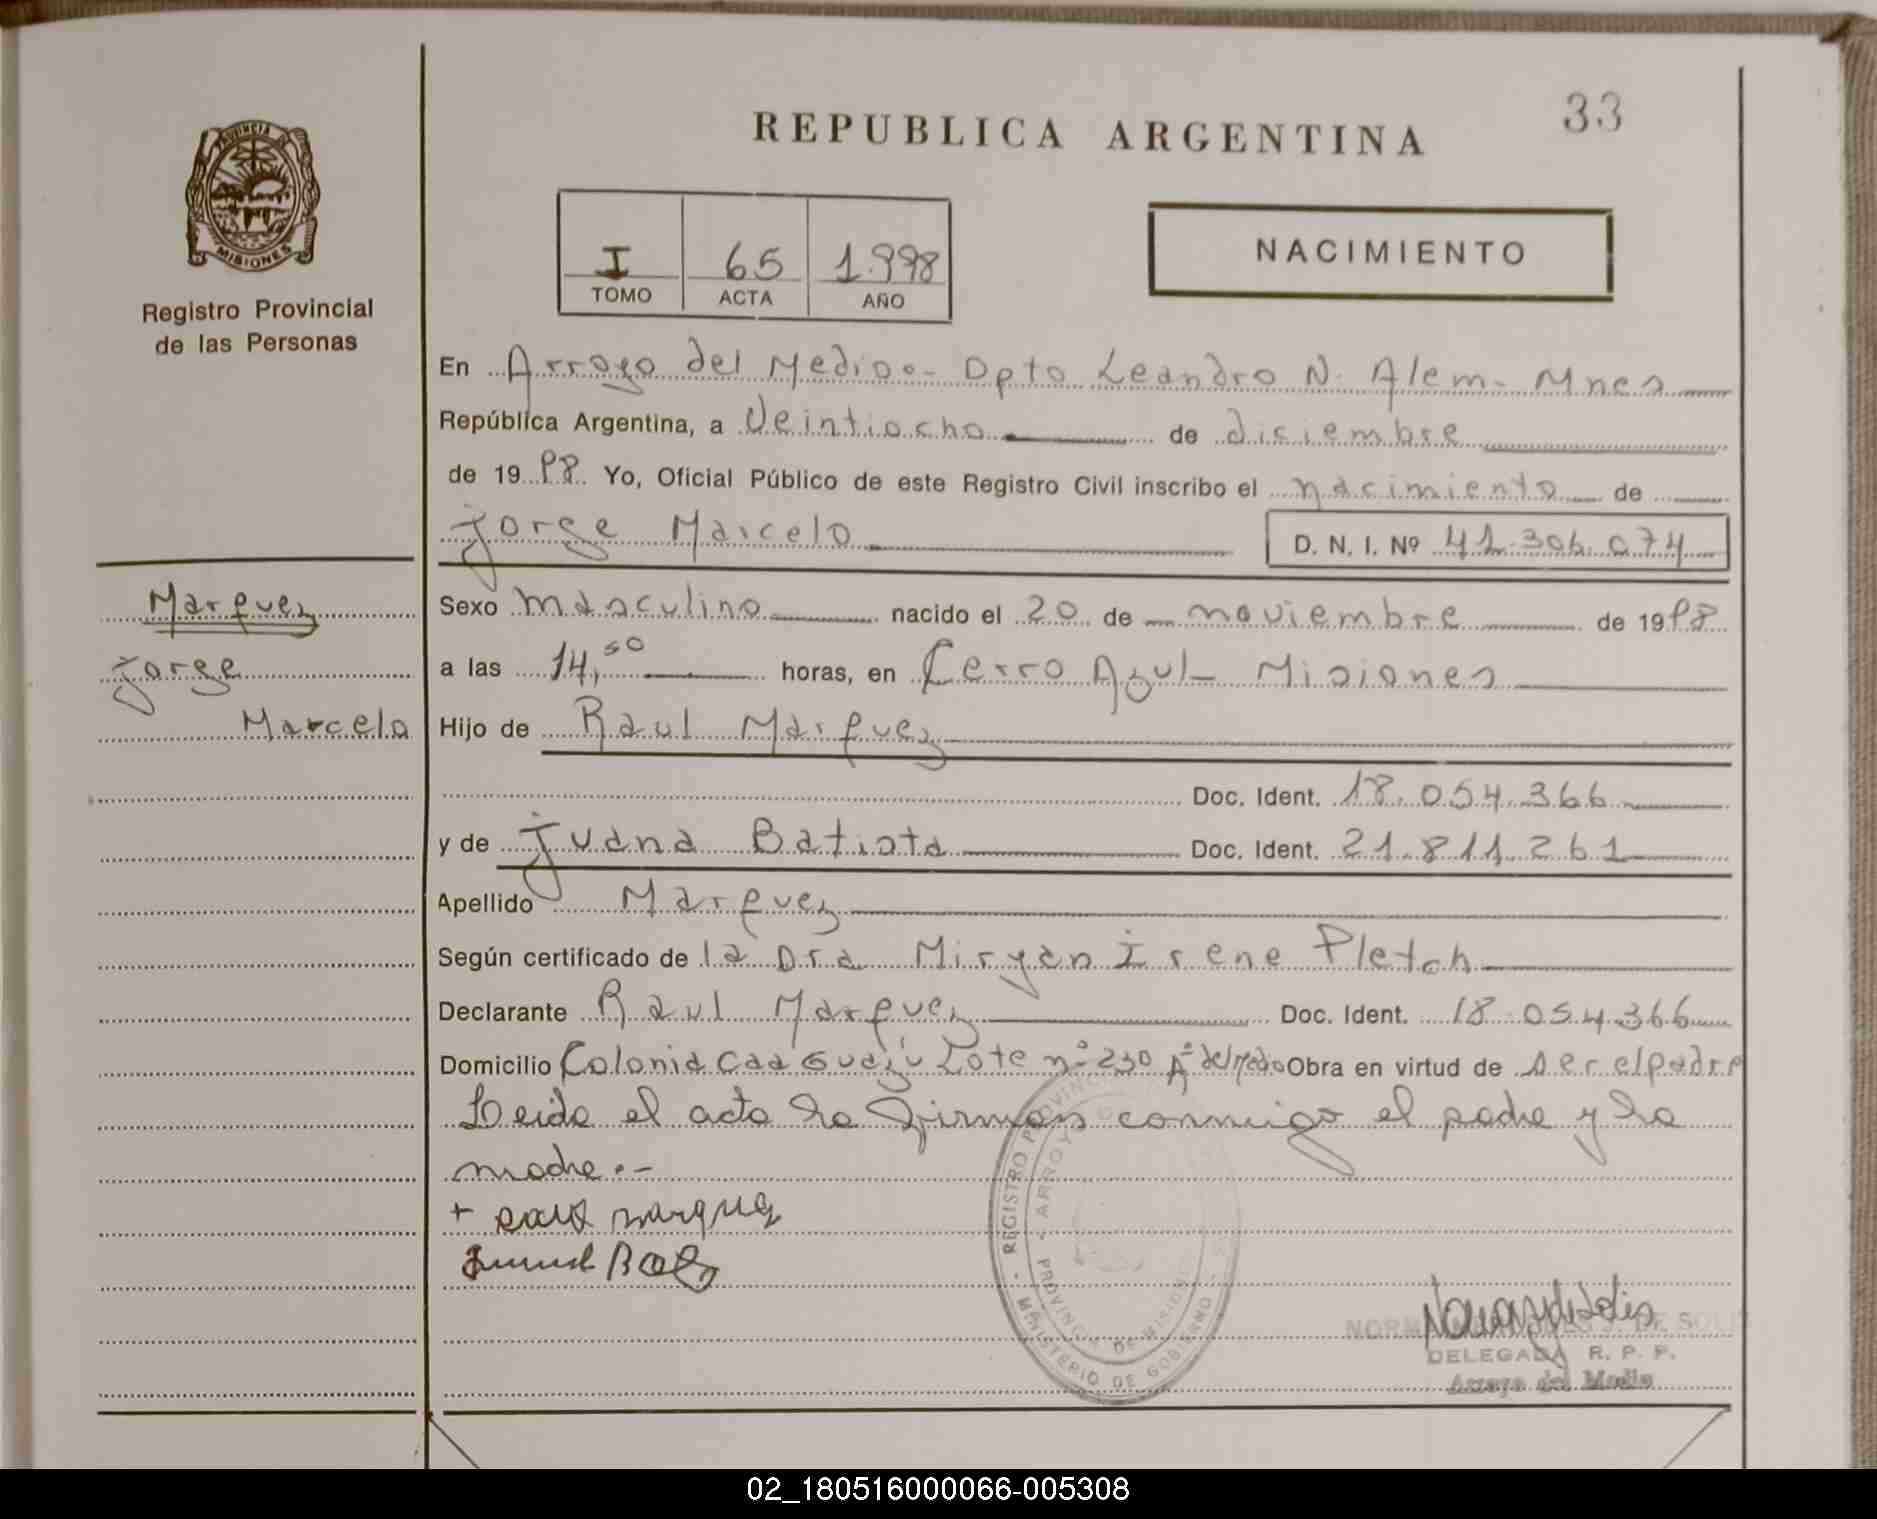 REPUBLICA ARGENTINA
33
PROVINCIA
MISIONES
Registro Provincial
de las Personas
I 65 1.998
TOMO ACTA AÑO
NACIMIENTO
En Arroyo del Medio.- Dpto Leandro N. Alem- Mnes
República Argentina, a Veintiocho de diciembre
de 1998 Yo, Oficial Público de este Registro Civil inscribo el nacimiento de
Jorge Marcelo D. N. I. Nº 41.306.074
Marquez
Jorge
Marcelo
Sexo masculino nacido el 20 de noviembre de 1998
a las 14,50 horas, en Cerro Azul- Misiones
Hijo de Raul Marquez
Doc. Ident. 18.054.366
y de Juana Batista Doc. Ident. 21.811.261
Apellido Marquez
Según certificado de la Dra Miryan Irene Pletch
Declarante Raul Marquez Doc. Ident. 18.054.366
Domicilio Colonia Caa Guazú Lote nº 230 Aº del Medio Obra en virtud de ser el padre
Leida el acta la firman conmigo el padre y la
madre.-
+ Raul Marquez
REGISTRO PROVINCIAL
ARROYO
PROVINCIA DE MISIONES
MINISTERIO DE GOBIERNO
DE SOLIS
DELEGADA R. P. P.
Arroyo del Medio
02_180516000066-005308